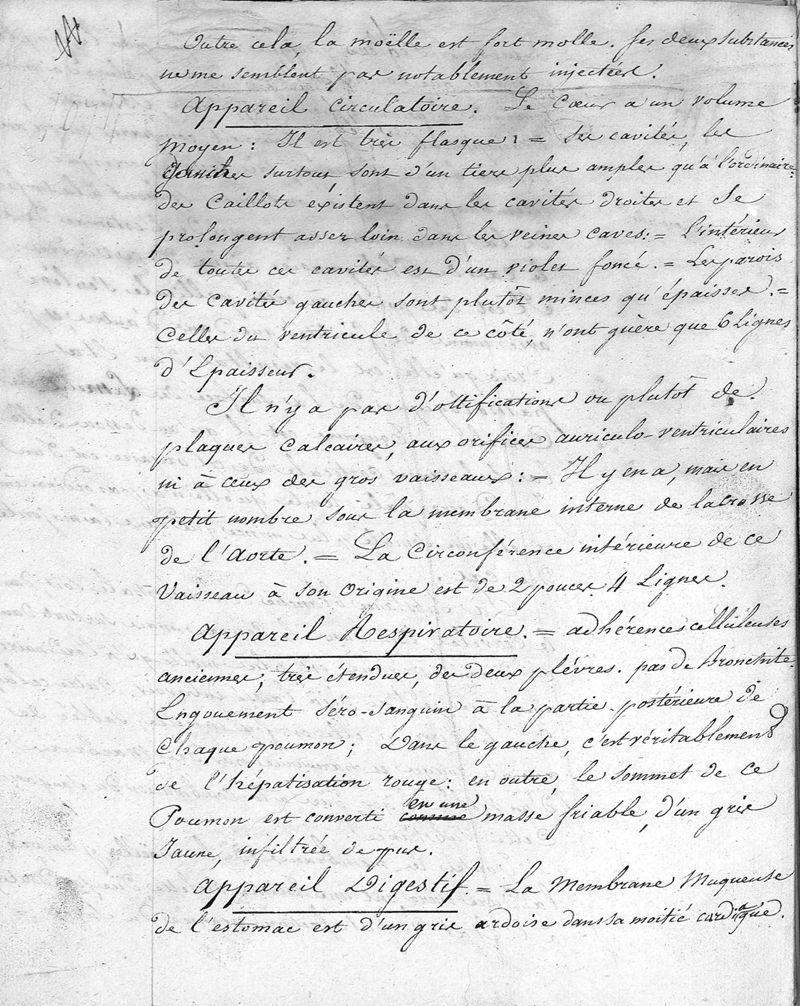 Outre cela, la moëlle est fort molle. ses deux substances
ne me semblent pas notablement injectées.
Appareil Circulatoire. Le Cœur a un volume
Moyen : Il est très flasque : = Ses cavités, les
droites surtout sont d'un tiers plus amples qu'à l'ordinaire.
des Caillots existent dans les cavités droites et Se
prolongent assez loin dans les veines caves : = l'intérieur
de toutes ces cavités est d'un violet foncé. = Les parois
des cavités gauches sont plutôt minces qu'épaisses. =
Celles du ventricule de ce côté, n'ont guère que 6 Lignes
d'Épaisseur.
Il n'y a pas d'ossifications ou plutôt de
plaques Calcaires, aux orifices auriculo-ventriculaires
ni à ceux des gros vaisseaux : = Il y en a, mais en
petit nombre sous la membrane interne de la crosse
de l'Aorte. = La Circonférence intérieure de ce
Vaisseau à son Origine est de 2 pouces 4 Lignes.
Appareil Respiratoire. = adhérences celluleuses
anciennes, très étendues, des deux plèvres. pas de Bronchite.
Engouement Séro-Sanguin à la partie postérieure de
Chaque poumon ; Dans le gauche, c'est véritablement
de l'hépatisation rouge : en outre, le sommet de ce
en une
Poumon est converti comme masse friable, d'un gris
Jaune, infiltrée de pus.
Appareil Digestif. = La Membrane Muqueuse
de l'estomac est d'un gris ardoise dans sa moitié cardiaque.